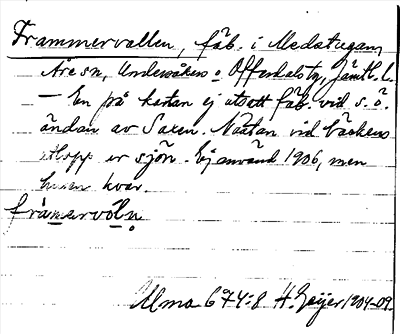 Frammervallen, fäb. i Medstugan,
Åre sn, Undersåkers o Offerdals tg, Jämtl. l.
— En på kartan ej utsatt fäb. vid s. ö.
ändan av Saxen. Nästan vid bäckens
utlopp er sjön. Ej använd 1906, men
husen kvar.
framervöln
Ulma 674:8 H. Geijer 1904-09.